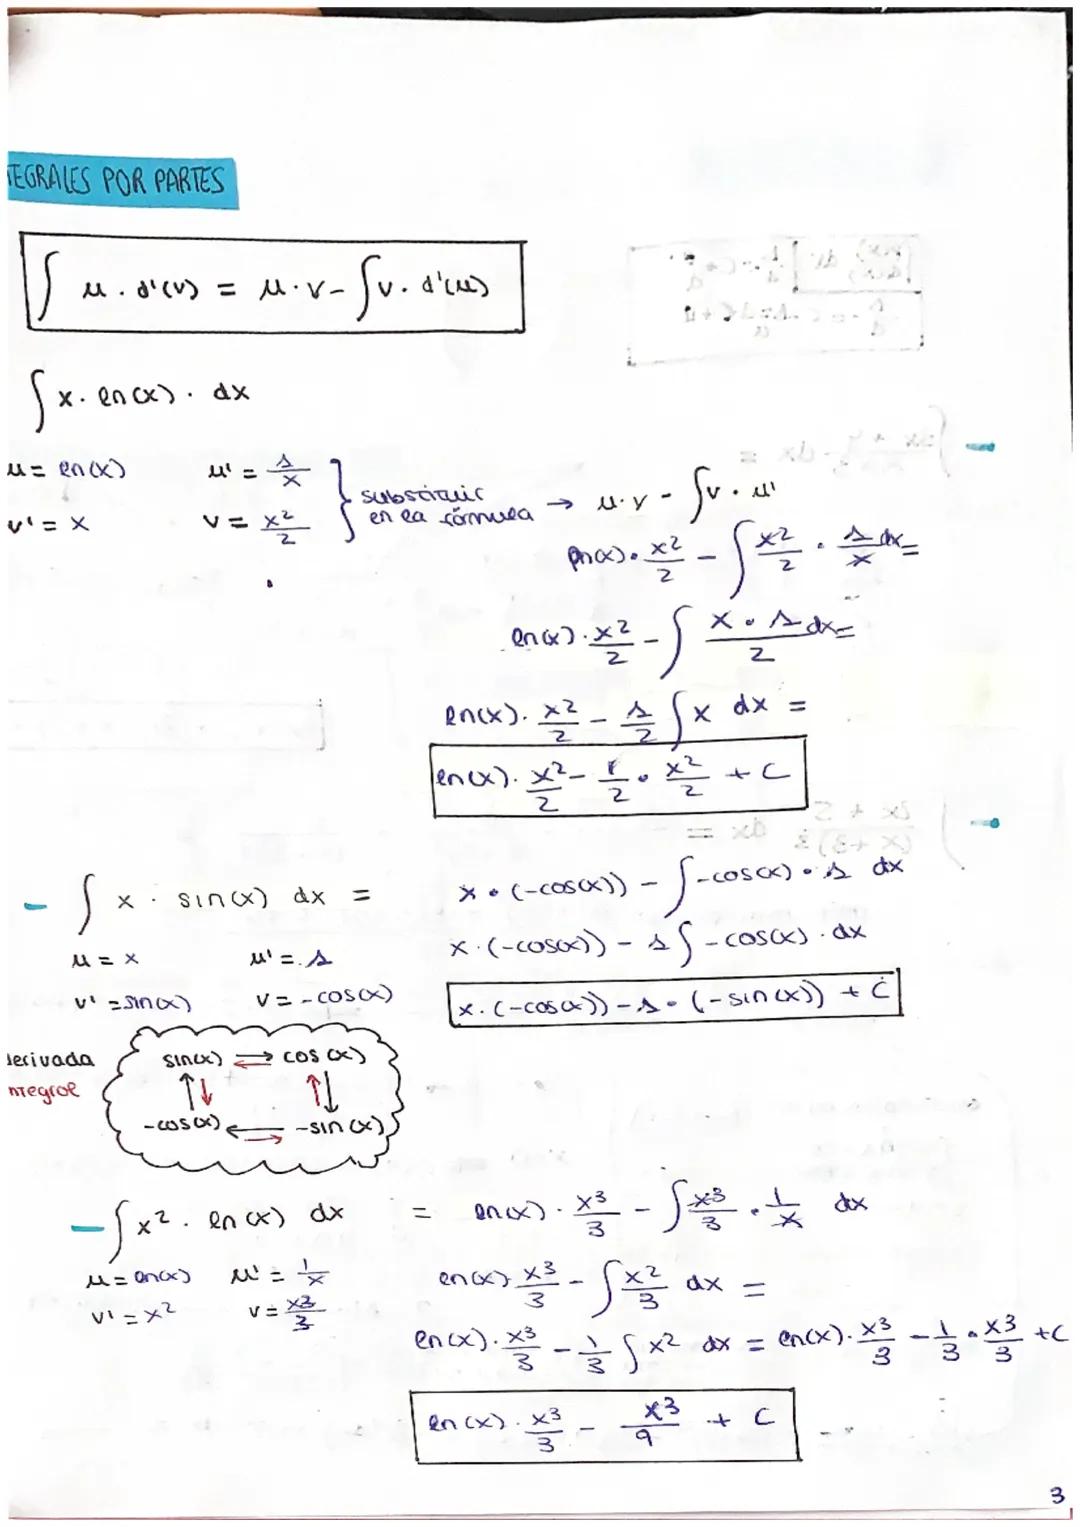 TEGRALES POR PARTES
∫ u · d'(v) = u · v - ∫ v · d'(u)
∫ x · ln(x) · dx
u = ln(x) u' = 1/x
v' = x v = x²/2
substituir
en la fórmula → u · v - ∫ v · u'
ln(x) · x²/2 - ∫ x²/2 · 1/x dx =
ln(x) · x²/2 - ∫ x · 1/2 dx =
ln(x) · x²/2 - 1/2 ∫ x dx =
ln(x) · x²/2 - 1/2 · x²/2 + C
- ∫ x · sin(x) dx = x · (-cos(x)) - ∫ -cos(x) · 1 dx
u = x u' = 1
v' = sin(x) v = -cos(x)
x · (-cos(x)) - 1 ∫ -cos(x) · dx
x · (-cos(x)) - 1 · (-sin(x)) + C
derivada
ntegral
sin(x) ⇄ cos(x)
↑↓ ↑↓
-cos(x) ⇄ -sin(x)
- ∫ x² · ln(x) dx = ln(x) · x³/3 - ∫ x³/3 · 1/x dx
u = ln(x) u' = 1/x
v' = x² v = x³/3
ln(x) · x³/3 - ∫ x²/3 dx =
ln(x) · x³/3 - 1/3 ∫ x² dx = ln(x) · x³/3 - 1/3 · x³/3 + C
ln(x) · x³/3 - x³/9 + C
3